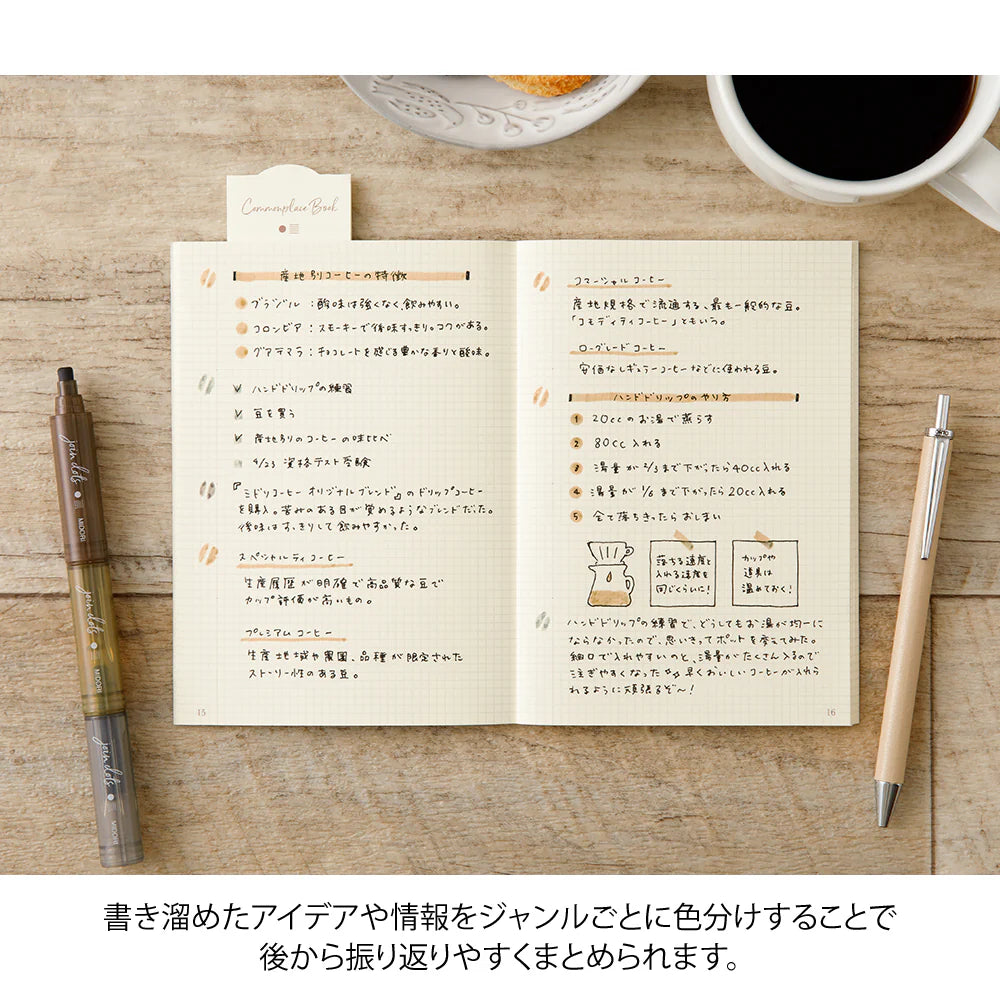 Commonplace Book
産地別コーヒーの特徴
ブラジル：酸味は強くなく、飲みやすい。
コロンビア：スモーキーで後味すっきり。コクがある。
グアテマラ：チョコレートを感じる豊かな香りと酸味。
ハンドドリップの練習
豆を買う
産地別のコーヒーの味比べ
4/23 資格テスト受験
『ミドリコーヒー オリジナルブレンド』のドリップコーヒー
を購入。苦みのある目が覚めるようなブレンドだった。
後味はすっきりして飲みやすかった。
スペシャルティコーヒー
生産履歴が明確で高品質な豆で
カップ評価が高いもの。
プレミアムコーヒー
生産地域や農園、品種が限定された
ストーリー性のある豆。
15
コマーシャルコーヒー
産地規格で流通する、最も一般的な豆。
「コモディティコーヒー」ともいう。
ローグレードコーヒー
安価なレギュラーコーヒーなどに使われる豆。
ハンドドリップのやり方
1 20ccのお湯で蒸らす
2 80cc入れる
3 湯量が2/3まで下がったら40cc入れる
4 湯量が1/6まで下がったら20cc入れる
5 全て落ちきったらおしまい
落ちる速度と
入れる速度を
同じくらいに！
カップや
道具は
温めておく！
ハンドドリップの練習で、どうしてもお湯が均一に
ならなかったので、思いきってポットを変えてみた。
細口で入れやすいのと、湯量がたくさん入るので
注ぎやすくなった 早くおいしいコーヒーが入れら
れるように頑張るぞ〜！
16
join dots
MIDORI
join dots
MIDORI
join dots
MIDORI
書き溜めたアイデアや情報をジャンルごとに色分けすることで
後から振り返りやすくまとめられます。